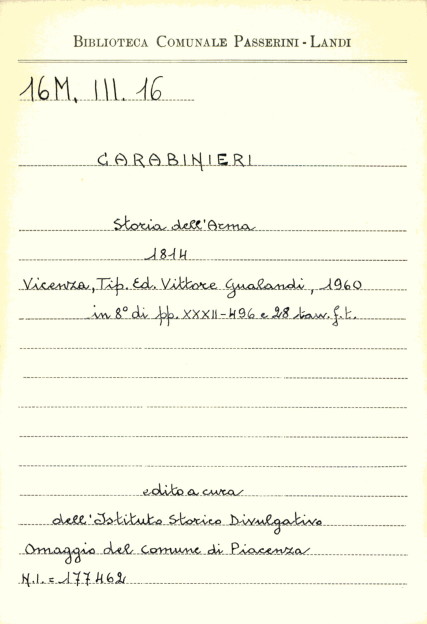 BIBLIOTECA COMUNALE PASSERINI - LANDI
16M. III. 16
CARABINIERI
Storia dell'Arma
1814
Vicenza, Tip. Ed. Vittore Gualandi, 1960
in 8° di pp. XXXII-496 e 28 tav. f.t.
edito a cura
dell'Istituto Storico Divulgativo
Omaggio del Comune di Piacenza
N.I. = 177462